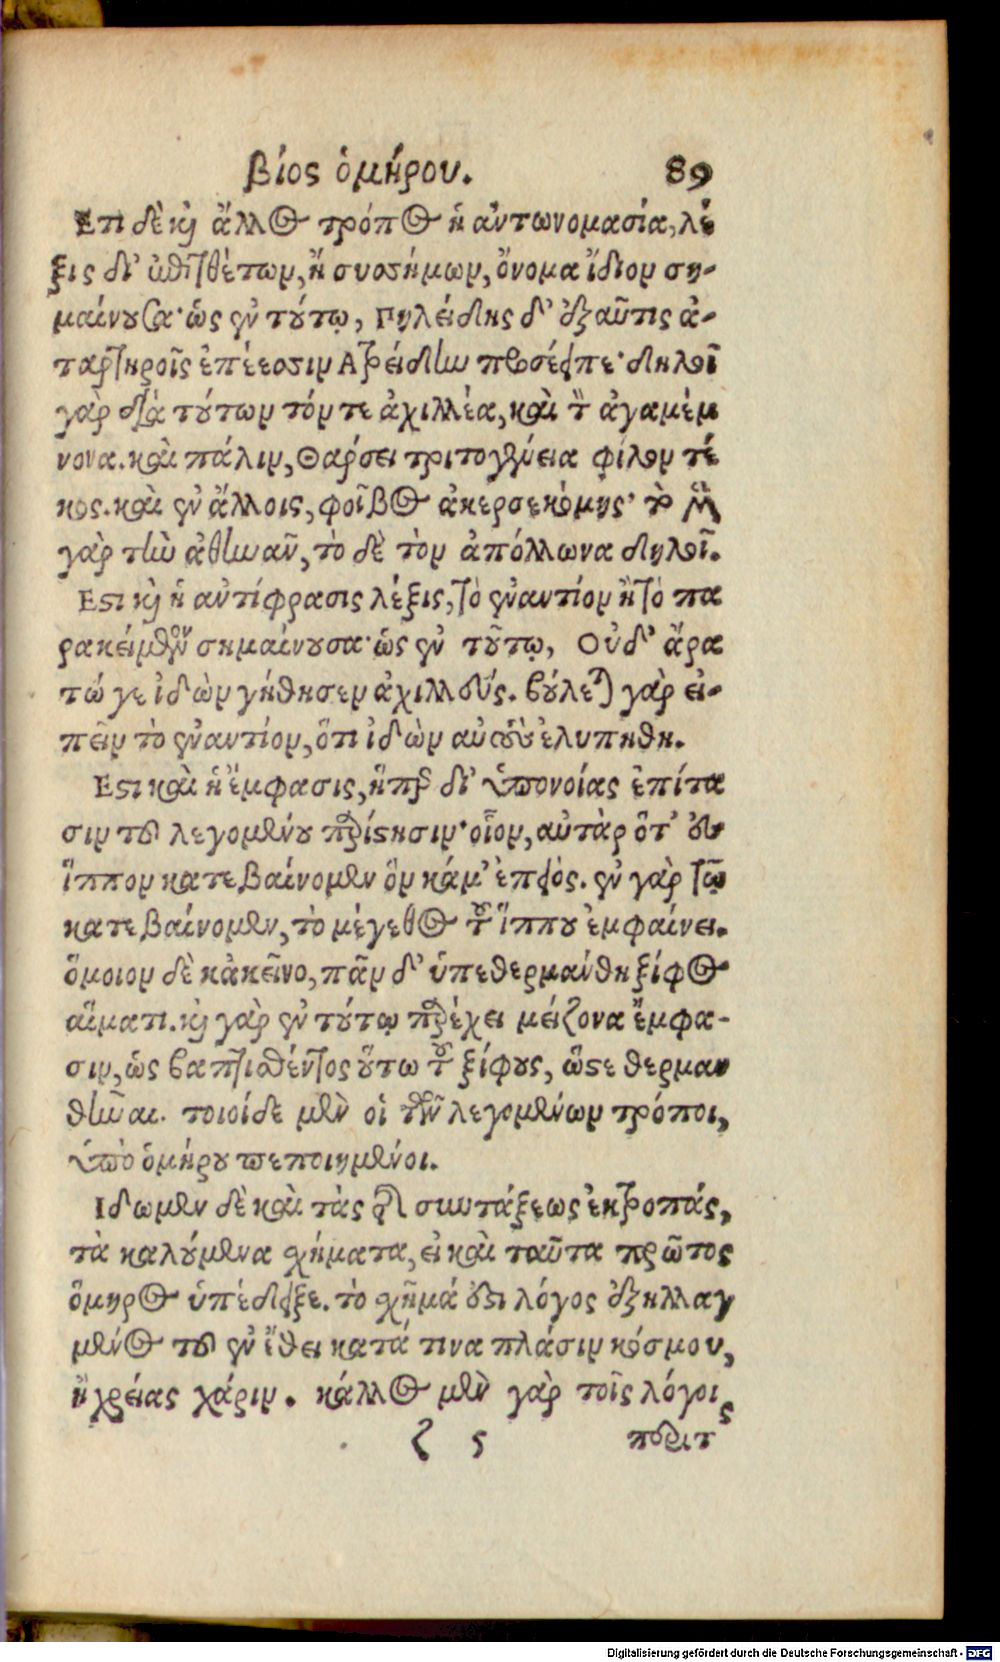 βίος ὁμήρου. 89
Ετι δὲ καὶ ἄλλος τρόπος ἡ ἀντωνομασία, λέ
ξις δι' ἐπιθέτων, ἢ συσσήμων, ὄνομα ἴδιον ση-
μαίνουσα· ὡς ἐν τούτῳ, Πηλείδης δ' ἐξαῦτις ἀ-
ταρτηροῖς ἐπέεσσιν Ατρείδην προσέειπε· δηλοῖ
γὰρ διὰ τούτων τόν τε ἀχιλλέα, καὶ τὸν ἀγαμέμ
νονα. καὶ πάλιν, Θαρσει τριτογένεια φίλον τέ
κος. καὶ ἐν ἄλλοις, φοῖβος ἀκερσεκόμης· τὸ μὲν
γὰρ τὴν ἀθηναν, τὸ δὲ τὸν ἀπόλλωνα δηλοῖ.
Εστι καὶ ἡ ἀντίφρασις λέξις, τὸ ἐναντίον ἢ τὸ πα
ρακείμενον σημαίνουσα· ὡς ἐν τούτῳ, Οὐδ' ἄρα
τώ γε ἰδὼν γήθησεν ἀχιλλεύς. βούλεται γὰρ εἰ-
πεῖν τὸ ἐναντίον, ὅτι ἰδὼν αὐτοὺς ἐλυπήθη.
Εστι καὶ ἡ ἔμφασις, ἥπερ δι' ὑπονοίας ἐπίτα
σιν τοῦ λεγομένου παρίστησιν· οἷον, αὐτὰρ ὅτ' εἰς
ἵππον κατεβαίνομεν ὃν κάμ' ἐπειός. ἐν γὰρ τῷ
κατεβαίνομεν, τὸ μέγεθος τοῦ ἵππου ἐμφαίνει.
ὅμοιον δὲ κἀκεῖνο, πᾶν δ' ὑπεθερμάνθη ξίφος
αἵματι. καὶ γὰρ ἐν τούτῳ παρέχει μείζονα ἔμφα-
σιν, ὡς βαπτισθέντος οὕτω τοῦ ξίφους, ὥστε θερμαν
θῆναι. τοιοίδε μὲν οἱ τῶν λεγομένων τρόποι,
ὑπὸ ὁμήρου πεποιημένοι.
Ιδωμεν δὲ καὶ τὰς τῆς συντάξεως ἐκτροπάς,
τὰ καλούμενα σχήματα, εἰ καὶ ταῦτα πρῶτος
ὅμηρος ὑπέδειξε. τὸ σχῆμά ἐστι λόγος ἐξηλλαγ
μένος τοῦ ἐν ἔθει κατά τινα πλάσιν κόσμου,
ἢ χρείας χάριν. κάλλος μὲν γὰρ τοῖς λόγοις
ζ 5
Digitalisierung gefördert durch die Deutsche Forschungsgemeinschaft - DFG